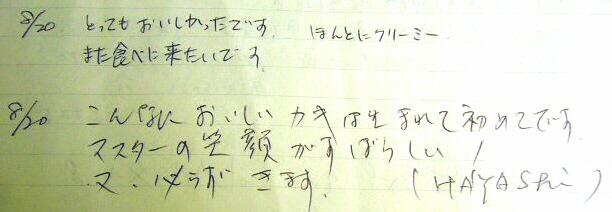 8/20 とってもおいしかったです。 ほんとにクリーミー
また食べに来たいです。
8/20 こんなに おいしい カキは生まれて初めてです。
マスターの笑顔がすばらしい！
又、必らず きます。 (HAYASHi)